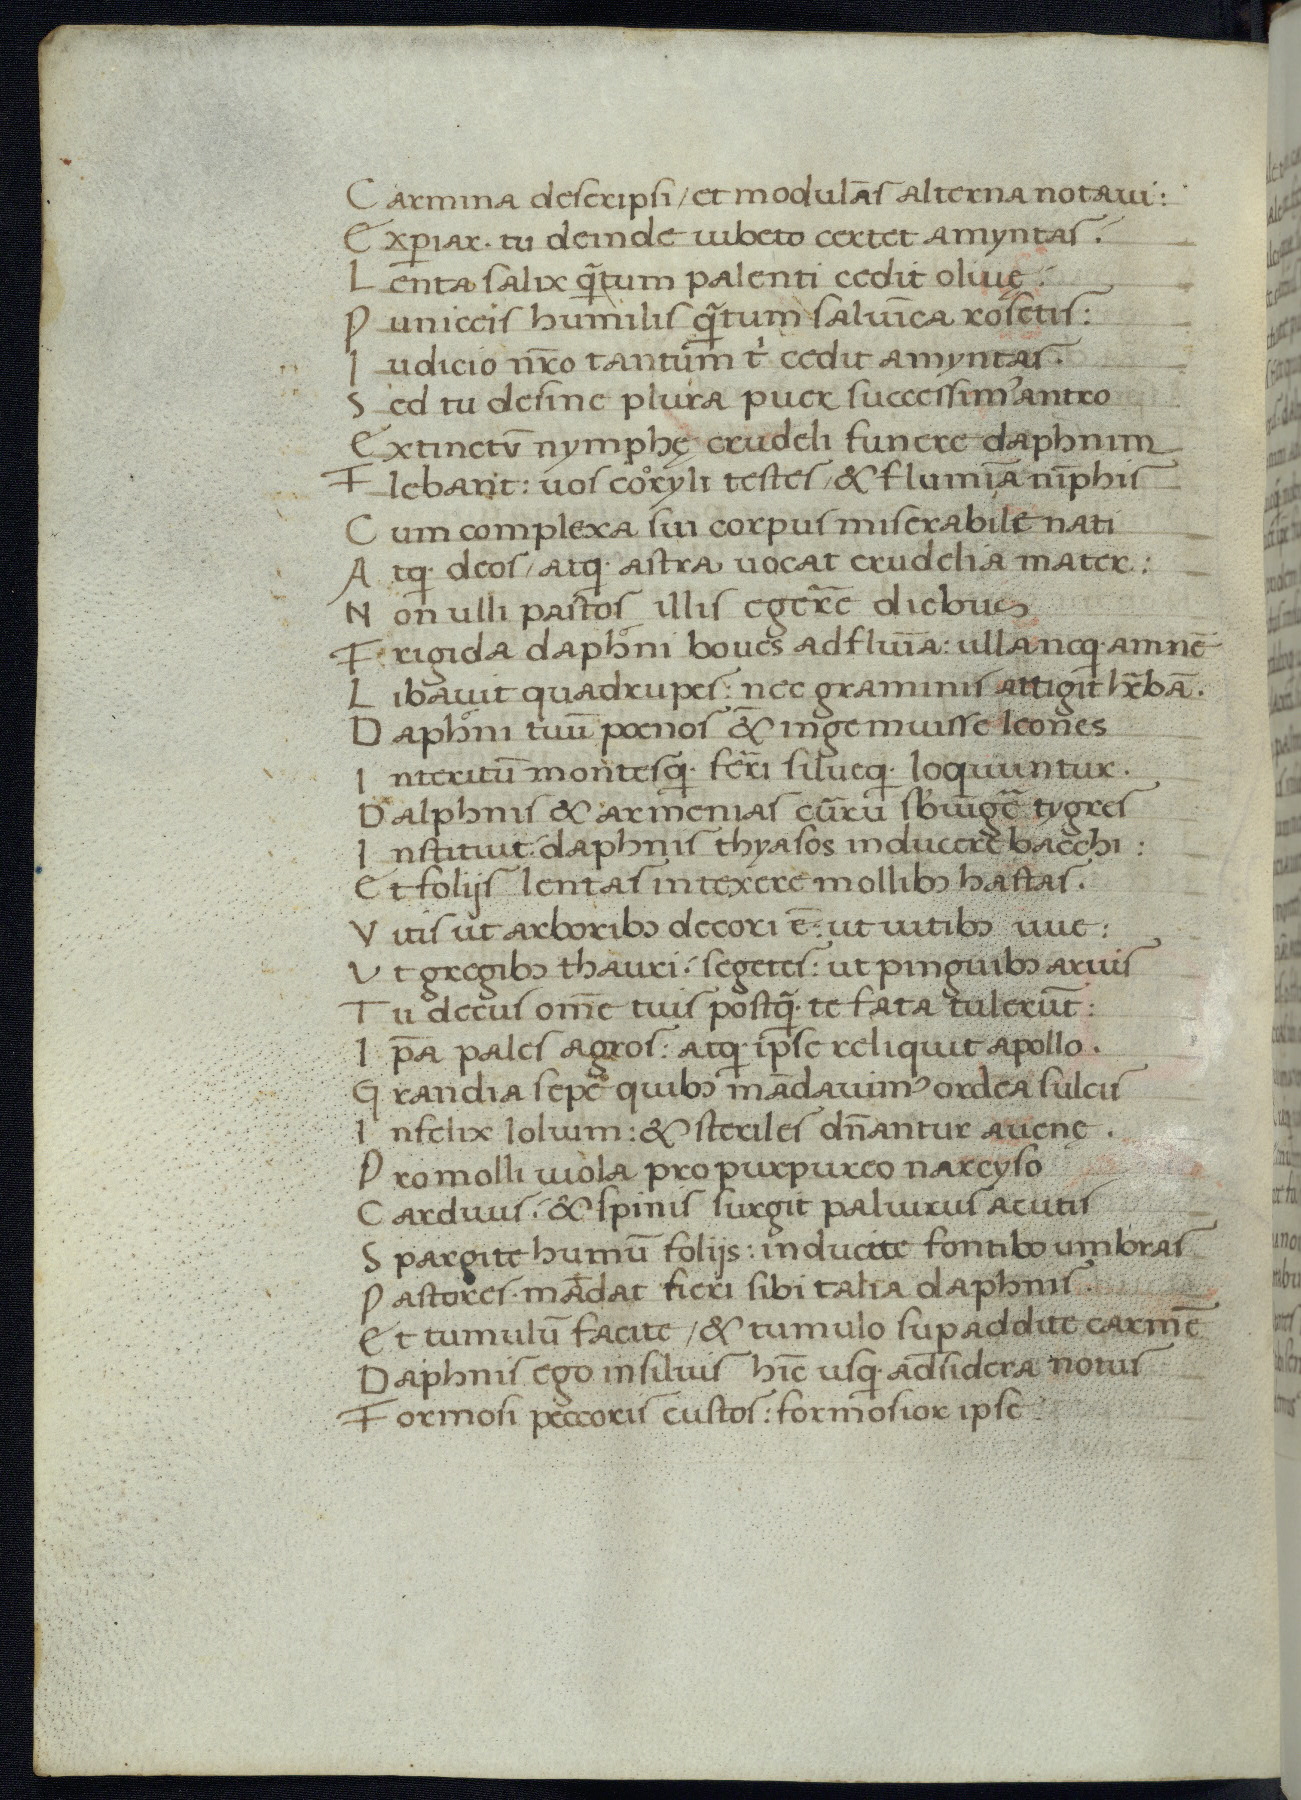 Carmina descripsi / et modulās alterna notaui:
Exꝑiar. tu deinde iubeto certet amyntas.
Lenta salix q̄tum palenti cedit oliuę:
Puniceis humilis q̄tum saliūca rosetis:
Iudicio nr̄o tantum tͥ cedit amyntas.
Sed tu desine plura puer successimꝰ antro
Extinctū nymphę crudeli funere daphnim
Flebant: uos coryli testes / & flumīa nīphis
Cum complexa sui corpus miserabile nati
Atq. deos / atq. astra uocat crudelia mater:
Non ulli pastos illis egere diebus
Frigida daphni boues ad fluīa: ulla neq. amnē
Libauit quadrupes: nec graminis attigit herbā.
Daphni tuū poenos & ingemuisse leones
Interitū montesq. feri silueq. loquuntur.
Dalphnis & armenias curru sbiūgē tygres
Instituit: daphnis thyasos inducere bacchi:
Et folijs lentas intexere mollibꝫ hastas.
Vitis ut arboribꝫ decori ē: ut uitibꝫ uue:
Vt gregibꝫ thauri: segetes: ut pinguibꝫ aruis
Tu decus om̄e tuis postq̄. te fata tulerūt:
Ip̄a pales agros: atq. ipse reliquit apollo.
Grandia sepe quibꝫ mādauimꝰ ordea sulcis
Infelix lolium: & steriles dn̄antur auenę.
Pro molli uiola pro purpureo narcyso
Carduus: & spinis surgit paliurus acutis
Spargite humū folijs: inducite fontibꝫ umbras
Pastores. mādat fieri sibi talia daphnis.
Et tumulū facite / & tumulo suꝑaddite carmē
Daphnis ego in siluis hīc usq. ad sidera notus
Formosi peccoris custos: formosior ipse